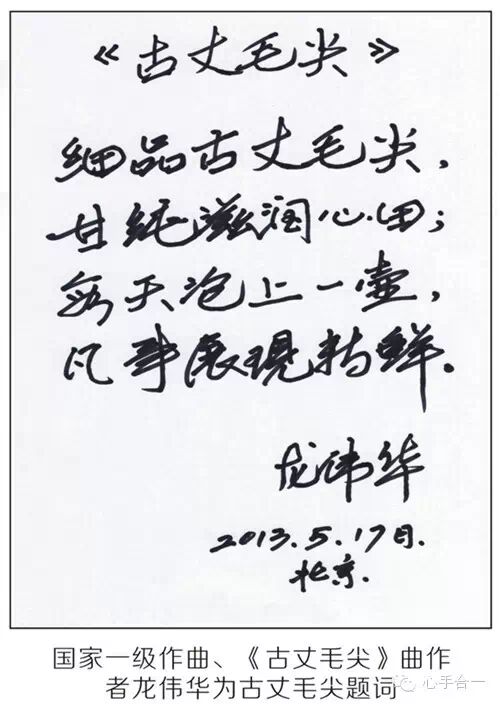 《古丈毛尖》
细品古丈毛尖，
甘纯滋润心田；
每天泡上一壶，
凡事展现鲜.
龙伟华
2013.5.17日.
北京.
国家一级作曲、《古丈毛尖》曲作
者龙伟华为古丈毛尖题词
心手合一